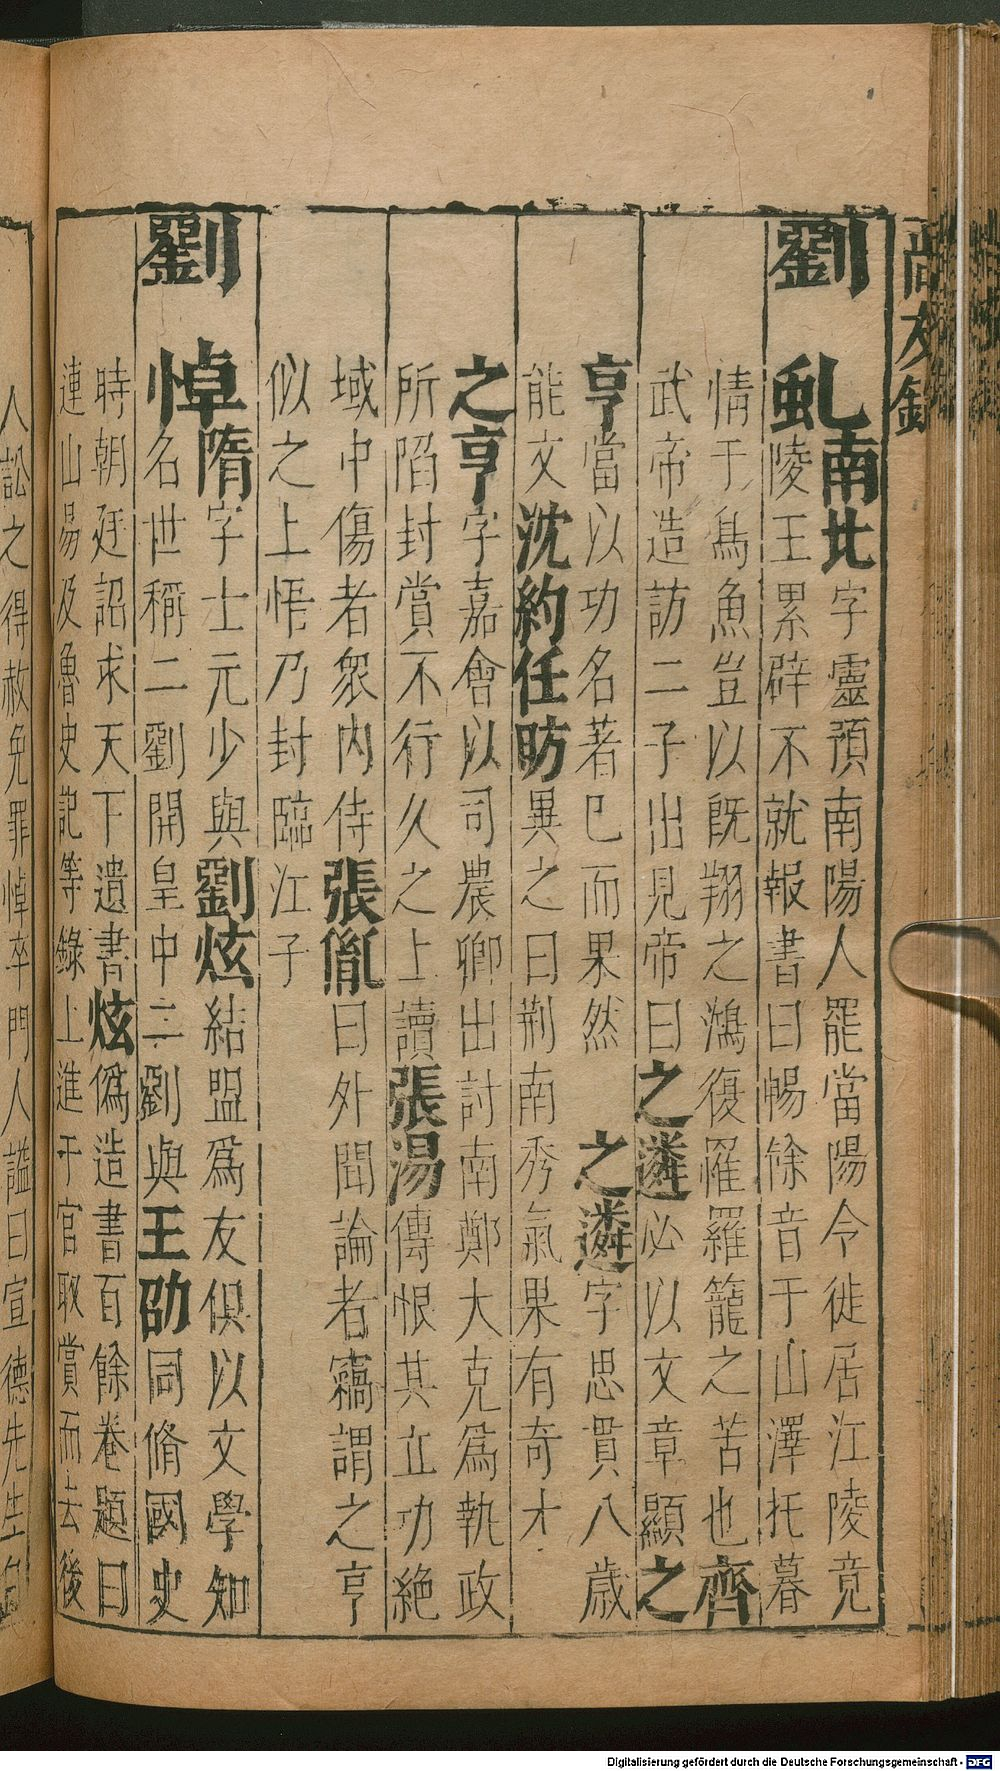 尚友錄
劉
虬南北字靈預南陽人罷當陽令徙居江陵竟
陵王累辟不就報書曰暢餘音于山澤托暮
情于魚豈以旣翔之鴻復罹羅籠之苦也齊
武帝造訪二子出見帝曰之遴必以文章顯之
亨當以功名著已而果然 之遴字思貫八歲
能文沈約任昉異之曰荊南秀氣果有奇才
之亨字嘉會以司農卿出討南鄭大克爲執政
所陷封賞不行久之上讀張湯傳恨其立功絕
域中傷者衆內侍張胤曰外聞論者竊謂之亨
似之上悟乃封臨江子
劉
悼隋字士元少與劉炫結盟爲友俱以文學知
名世稱二劉開皇中二劉與王劭同脩國史
時朝廷詔求天下遺書炫僞造書百餘卷題曰
連山易及魯史記等錄上進于官取賞而去後
人訟之得赦免罪悼卒門人諡曰宣德先生
Digitalisierung gefördert durch die Deutsche Forschungsgemeinschaft - DFG